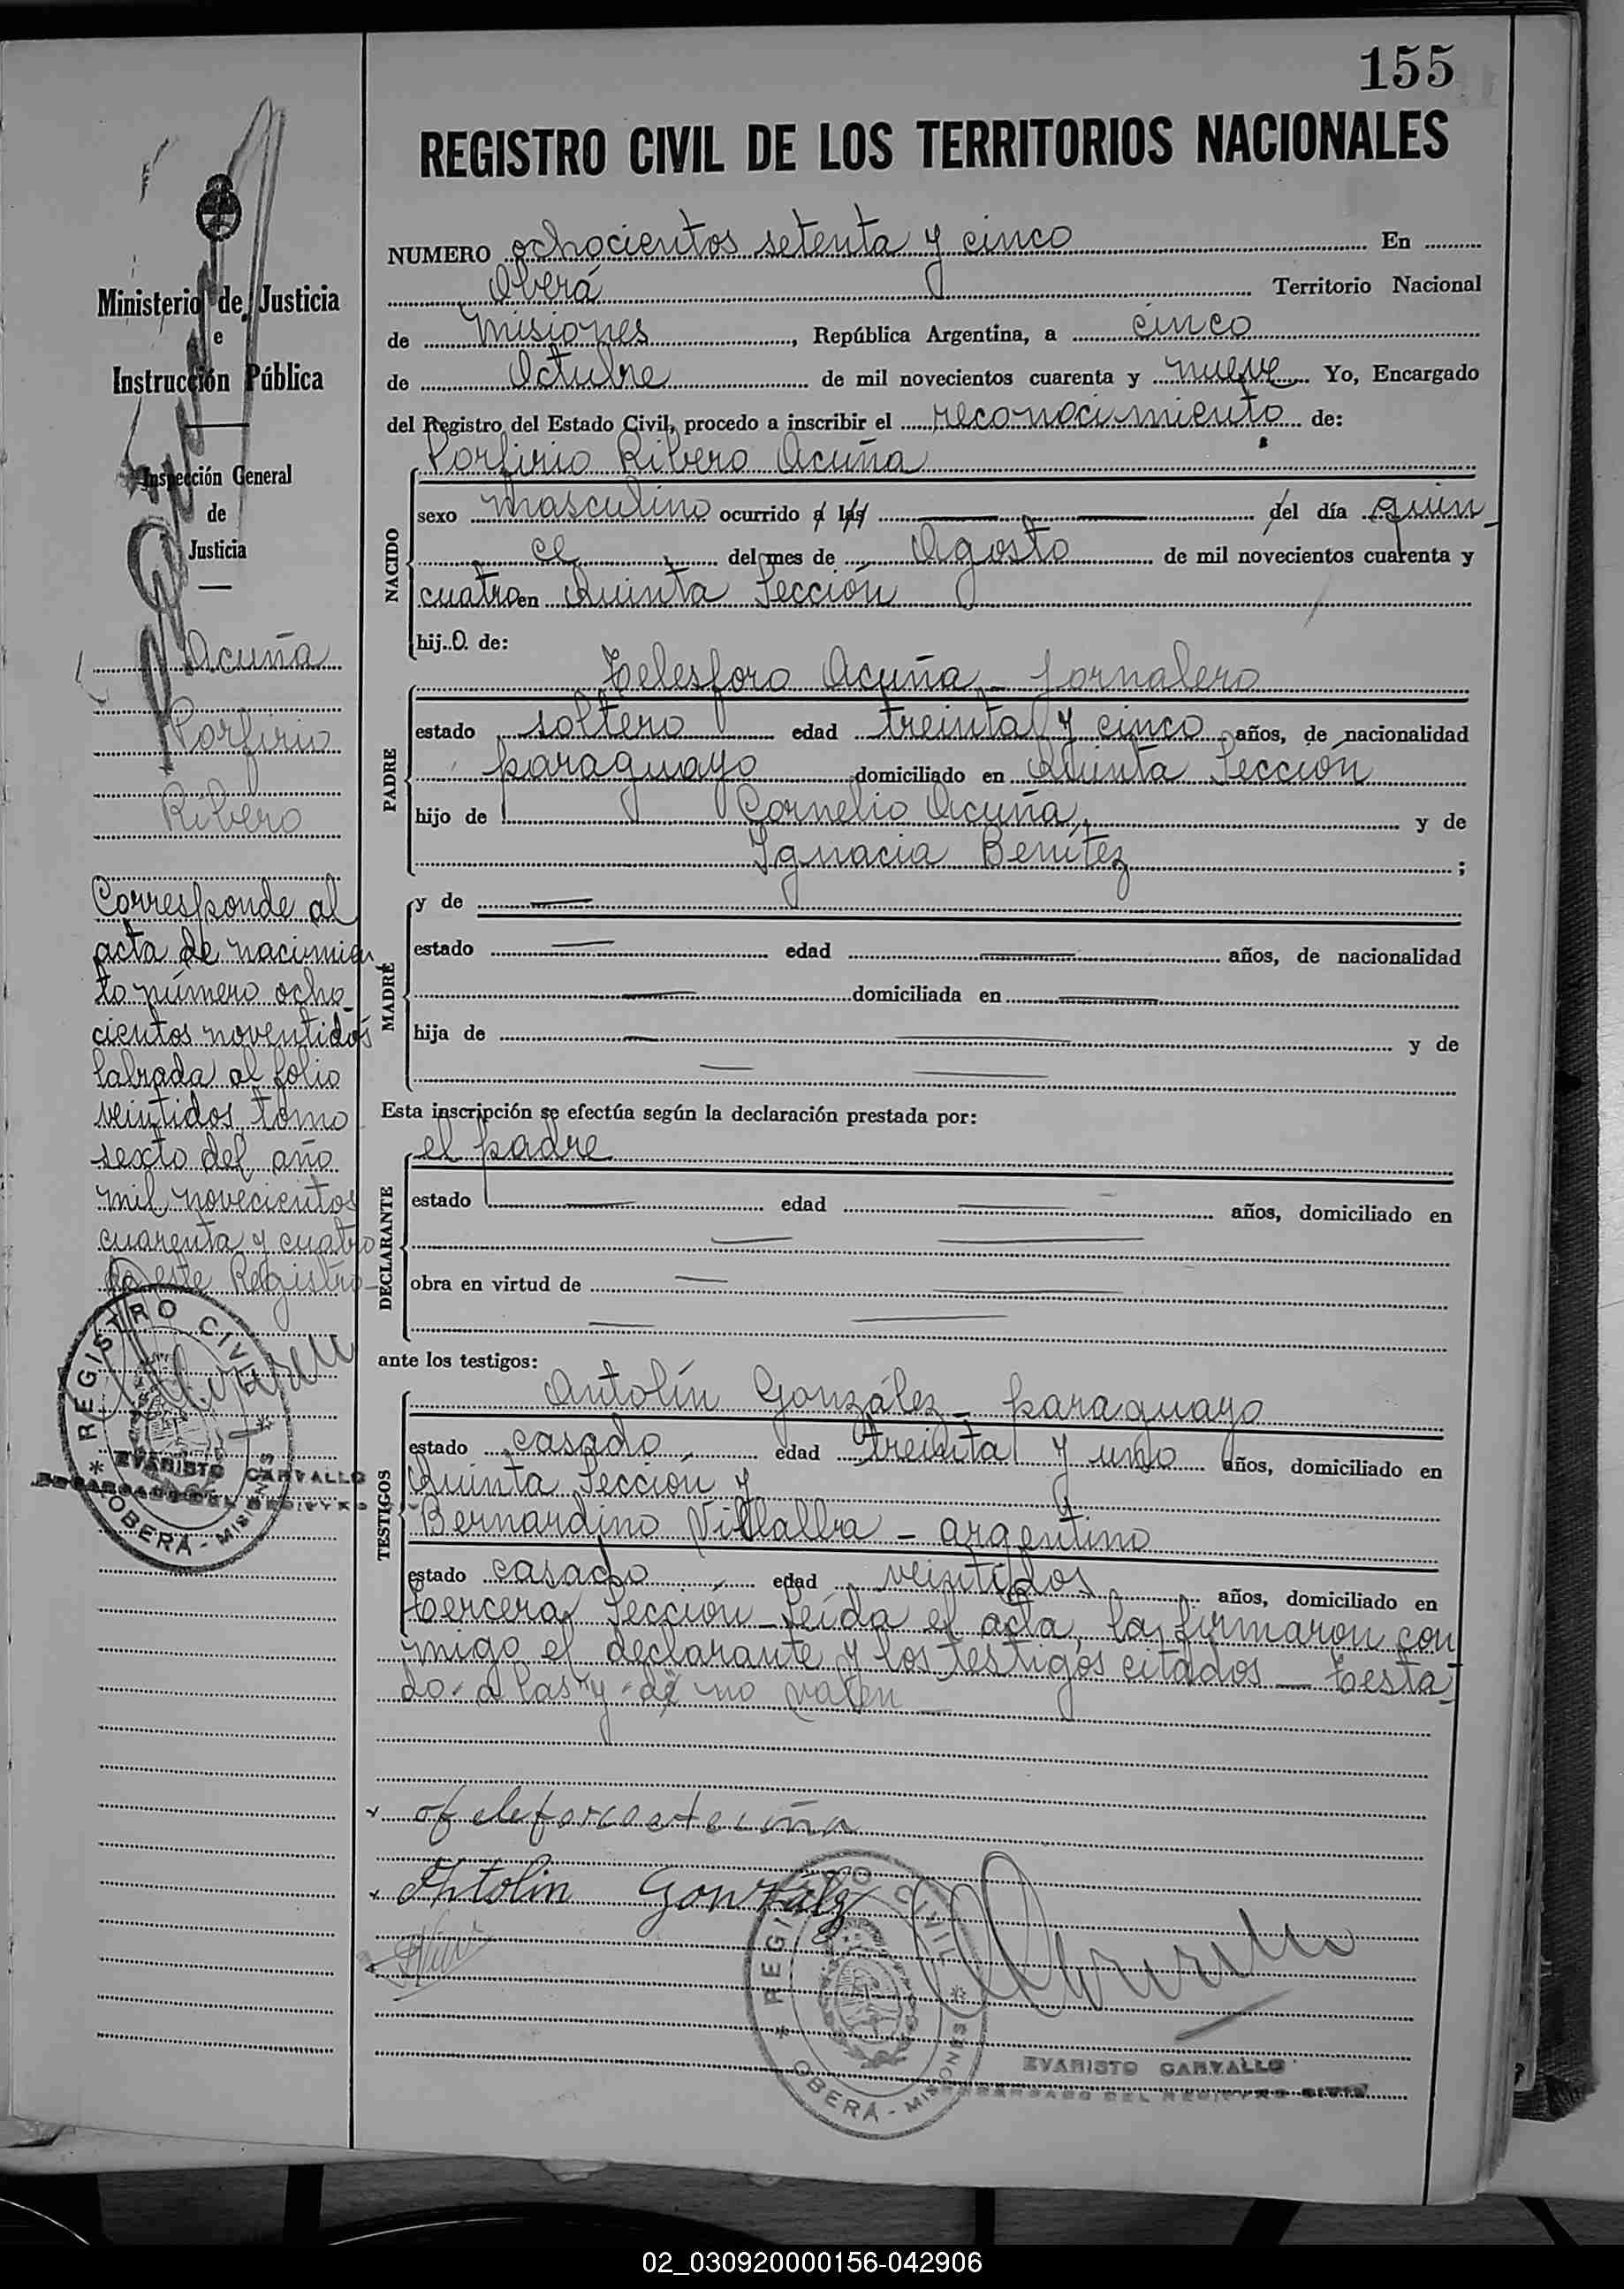 155
REGISTRO CIVIL DE LOS TERRITORIOS NACIONALES
NUMERO ochocientos setenta y cinco En
Oberá Territorio Nacional
de Misiones, República Argentina, a cinco
de Octubre de mil novecientos cuarenta y nueve Yo, Encargado
del Registro del Estado Civil, procedo a inscribir el reconocimiento de:
Porfirio Ribero Acuña
NACIDO
sexo masculino ocurrido a las del día quin-
ce del mes de Agosto de mil novecientos cuarenta y
cuatro en Quinta Sección
hijo de:
PADRE
Telesforo Acuña - jornalero
estado soltero edad treinta y cinco años, de nacionalidad
paraguayo domiciliado en Quinta Sección
hijo de Cornelio Acuña, y de
Ignacia Benítez ;
MADRE
y de
estado edad años, de nacionalidad
domiciliada en
hija de y de
Esta inscripción se efectúa según la declaración prestada por:
DECLARANTE
el padre
estado edad años, domiciliado en
obra en virtud de
ante los testigos:
TESTIGOS
Antolín González - paraguayo
estado casado edad treinta y uno años, domiciliado en
Quinta Sección y
Bernardino Villalba - argentino
estado casado edad veintidos años, domiciliado en
tercera Sección - Leída el acta, la firmaron con
migo el declarante y los testigos citados - Testa-
do - a las "y" de no valen
Antolin Gonzalez
REGISTRO CIVIL
OBERÁ - MISIONES
EVARISTO CARVALLO
ENCARGADO DEL REGISTRO CIVIL
Ministerio de Justicia
e
Instrucción Pública
Inspección General
de
Justicia
Acuña
Porfirio
Ribero
Corresponde al
acta de nacimien
to número ocho-
cientos noventidós
labrada al folio
veintidos tomo
sexto del año
mil novecientos
cuarenta y cuatro
de este Registro-
REGISTRO CIVIL
OBERÁ - MISIONES
EVARISTO CARVALLO
ENCARGADO DEL REGISTRO
02_030920000156-042906